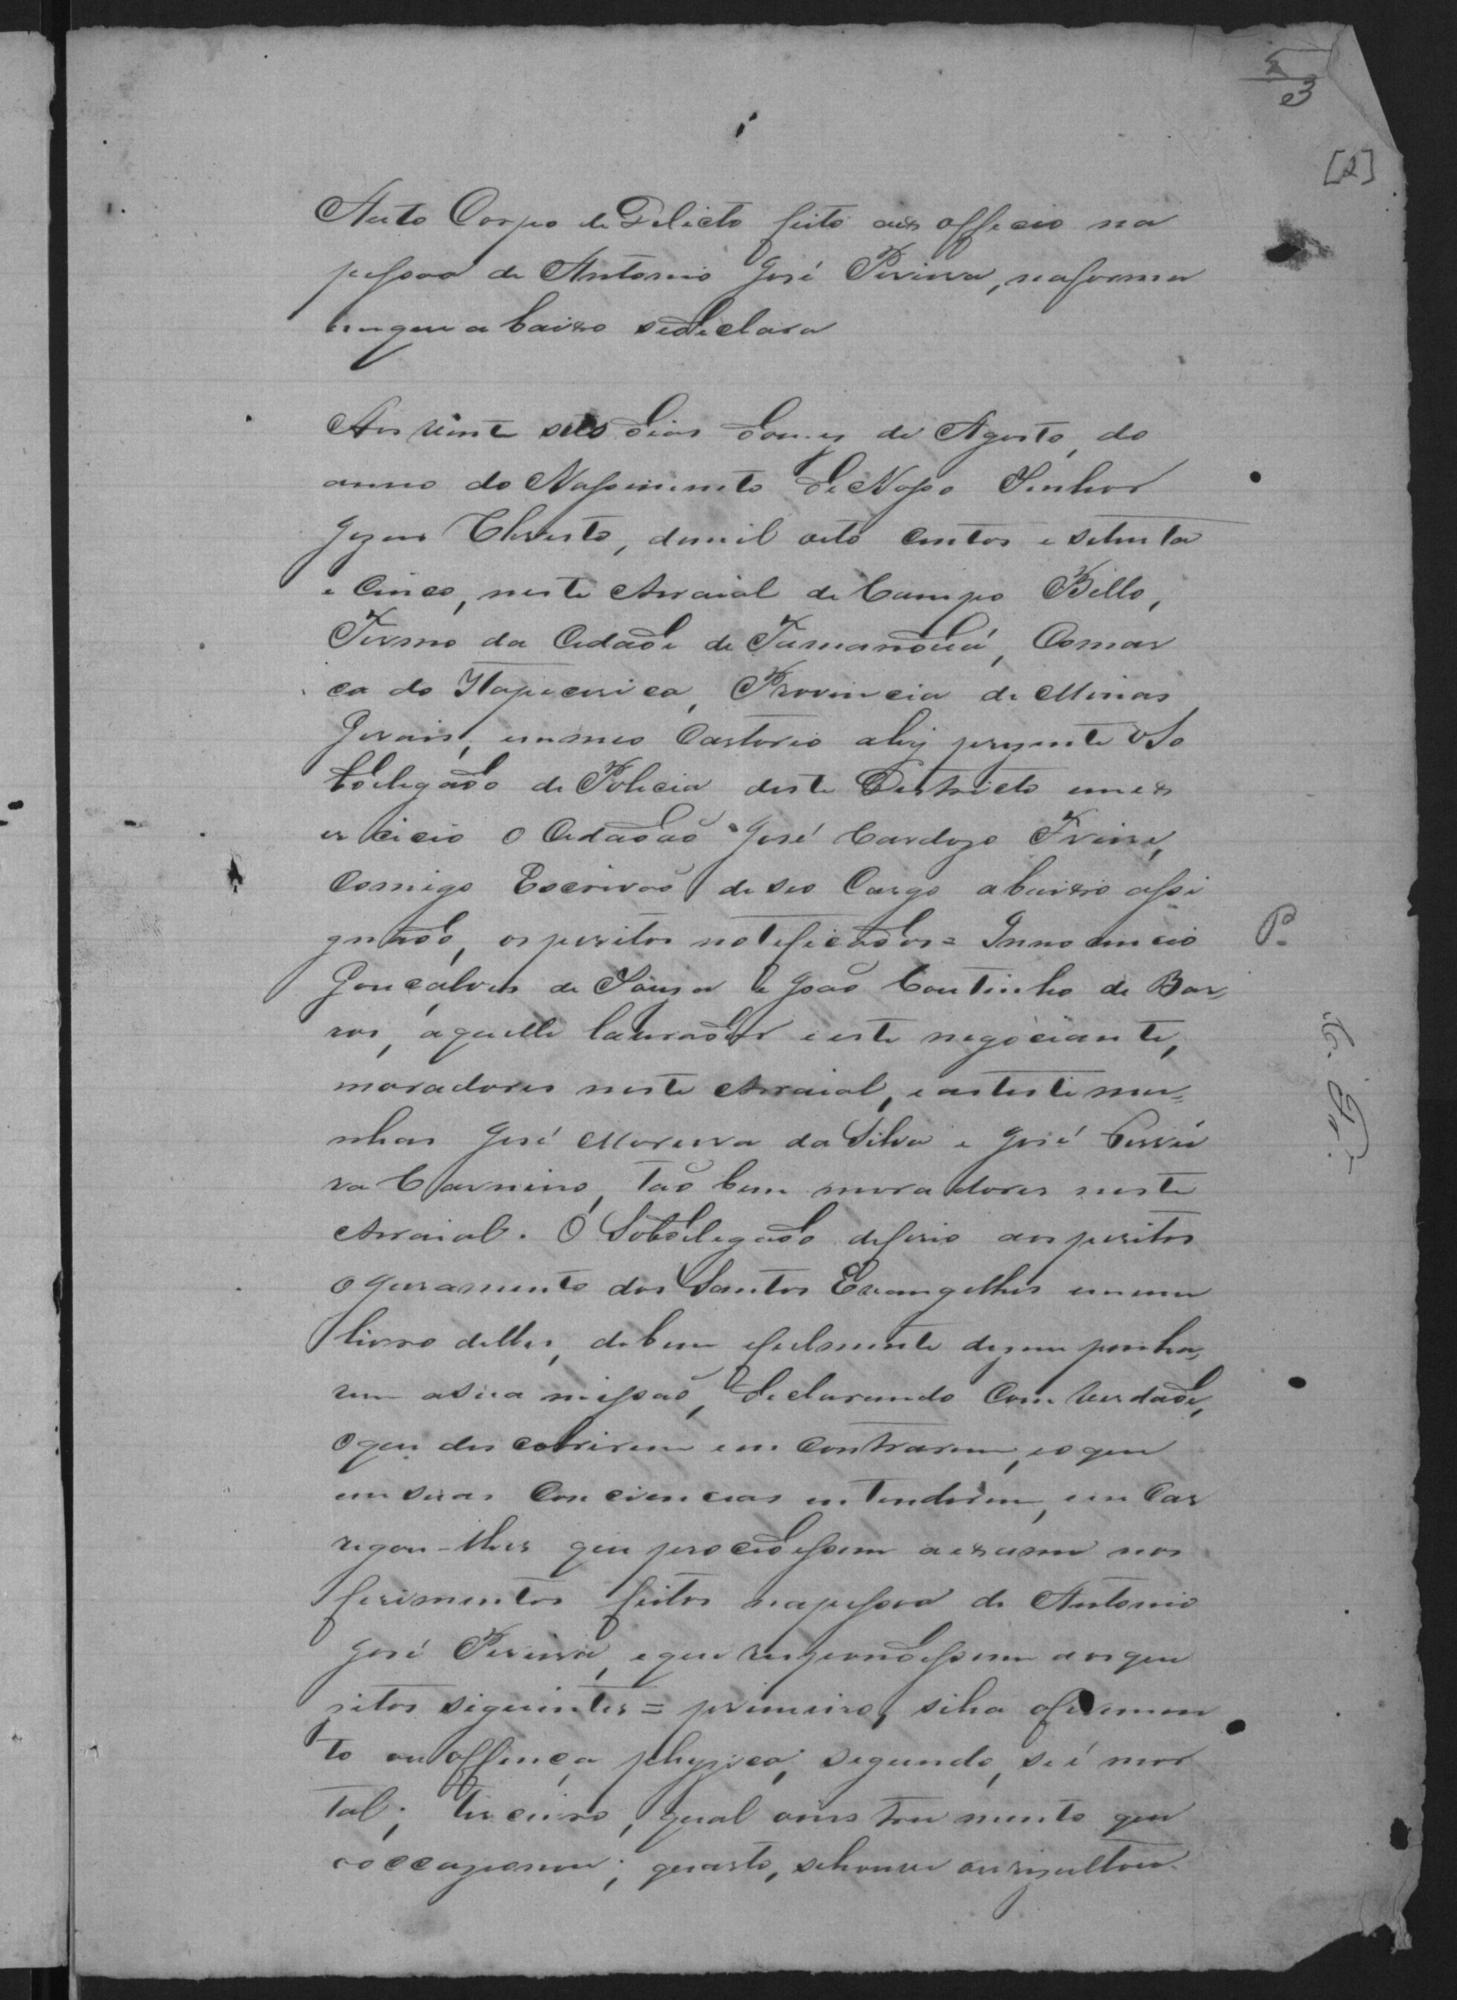 2
3
[2]
Auto Corpo de Delicto feito aex officio na
pessoa de Antonio José Pereira, naforma
em que abaixo sedeclara
Aos vinte seis dias domez de Agosto, do
anno do Nascimento de Nosso Senhor
Jezus Christo, demil oito centos e setenta
e cinco, neste Arraial de Campo Bello,
Termo da Cidade de Tamanduá, Comar
ca do Itapecerica, Provincia de Minas
Geraes, emmeo Cartorio ahy prezente o So
bdelegado de Policia deste Districto emex
ercicio o Cidadão José Cardozo
Comigo Escrivaõ deseo Cargo abaixo assi
gnado, os peritos noteficados = Innocencio
Gonçalves de Souza e João Coutinho de Bar,
ros, aquelle laurador e este negociante,
moradores neste Arraial, e astestimu=
nhas José Moreira da Silva e José Ferrei
ra Carneiro, taõ bem moradores neste
Arraial. O Sobdelegado deferio aos peritos
o juramento dos Santos Evangelhos emum
livro delles, debem efielmente dezempenha,
rem asua missaõ, declarando Com verdade,
oque descobrirem encontrarem, eoque
emsuas Conciencias entenderem, encar
regou-lhes que procedessem aexame nos
ferimentos feitos napessoa de Antonio
José Pereira, eque respondessem aosque
zitos siguintes = primeiro, seha oferimen
to ou offença physica; segundo, se é mor
tal; terceiro, qual oinstrumento que
ooccazionou; quarto, sehouve ouresultou
P.